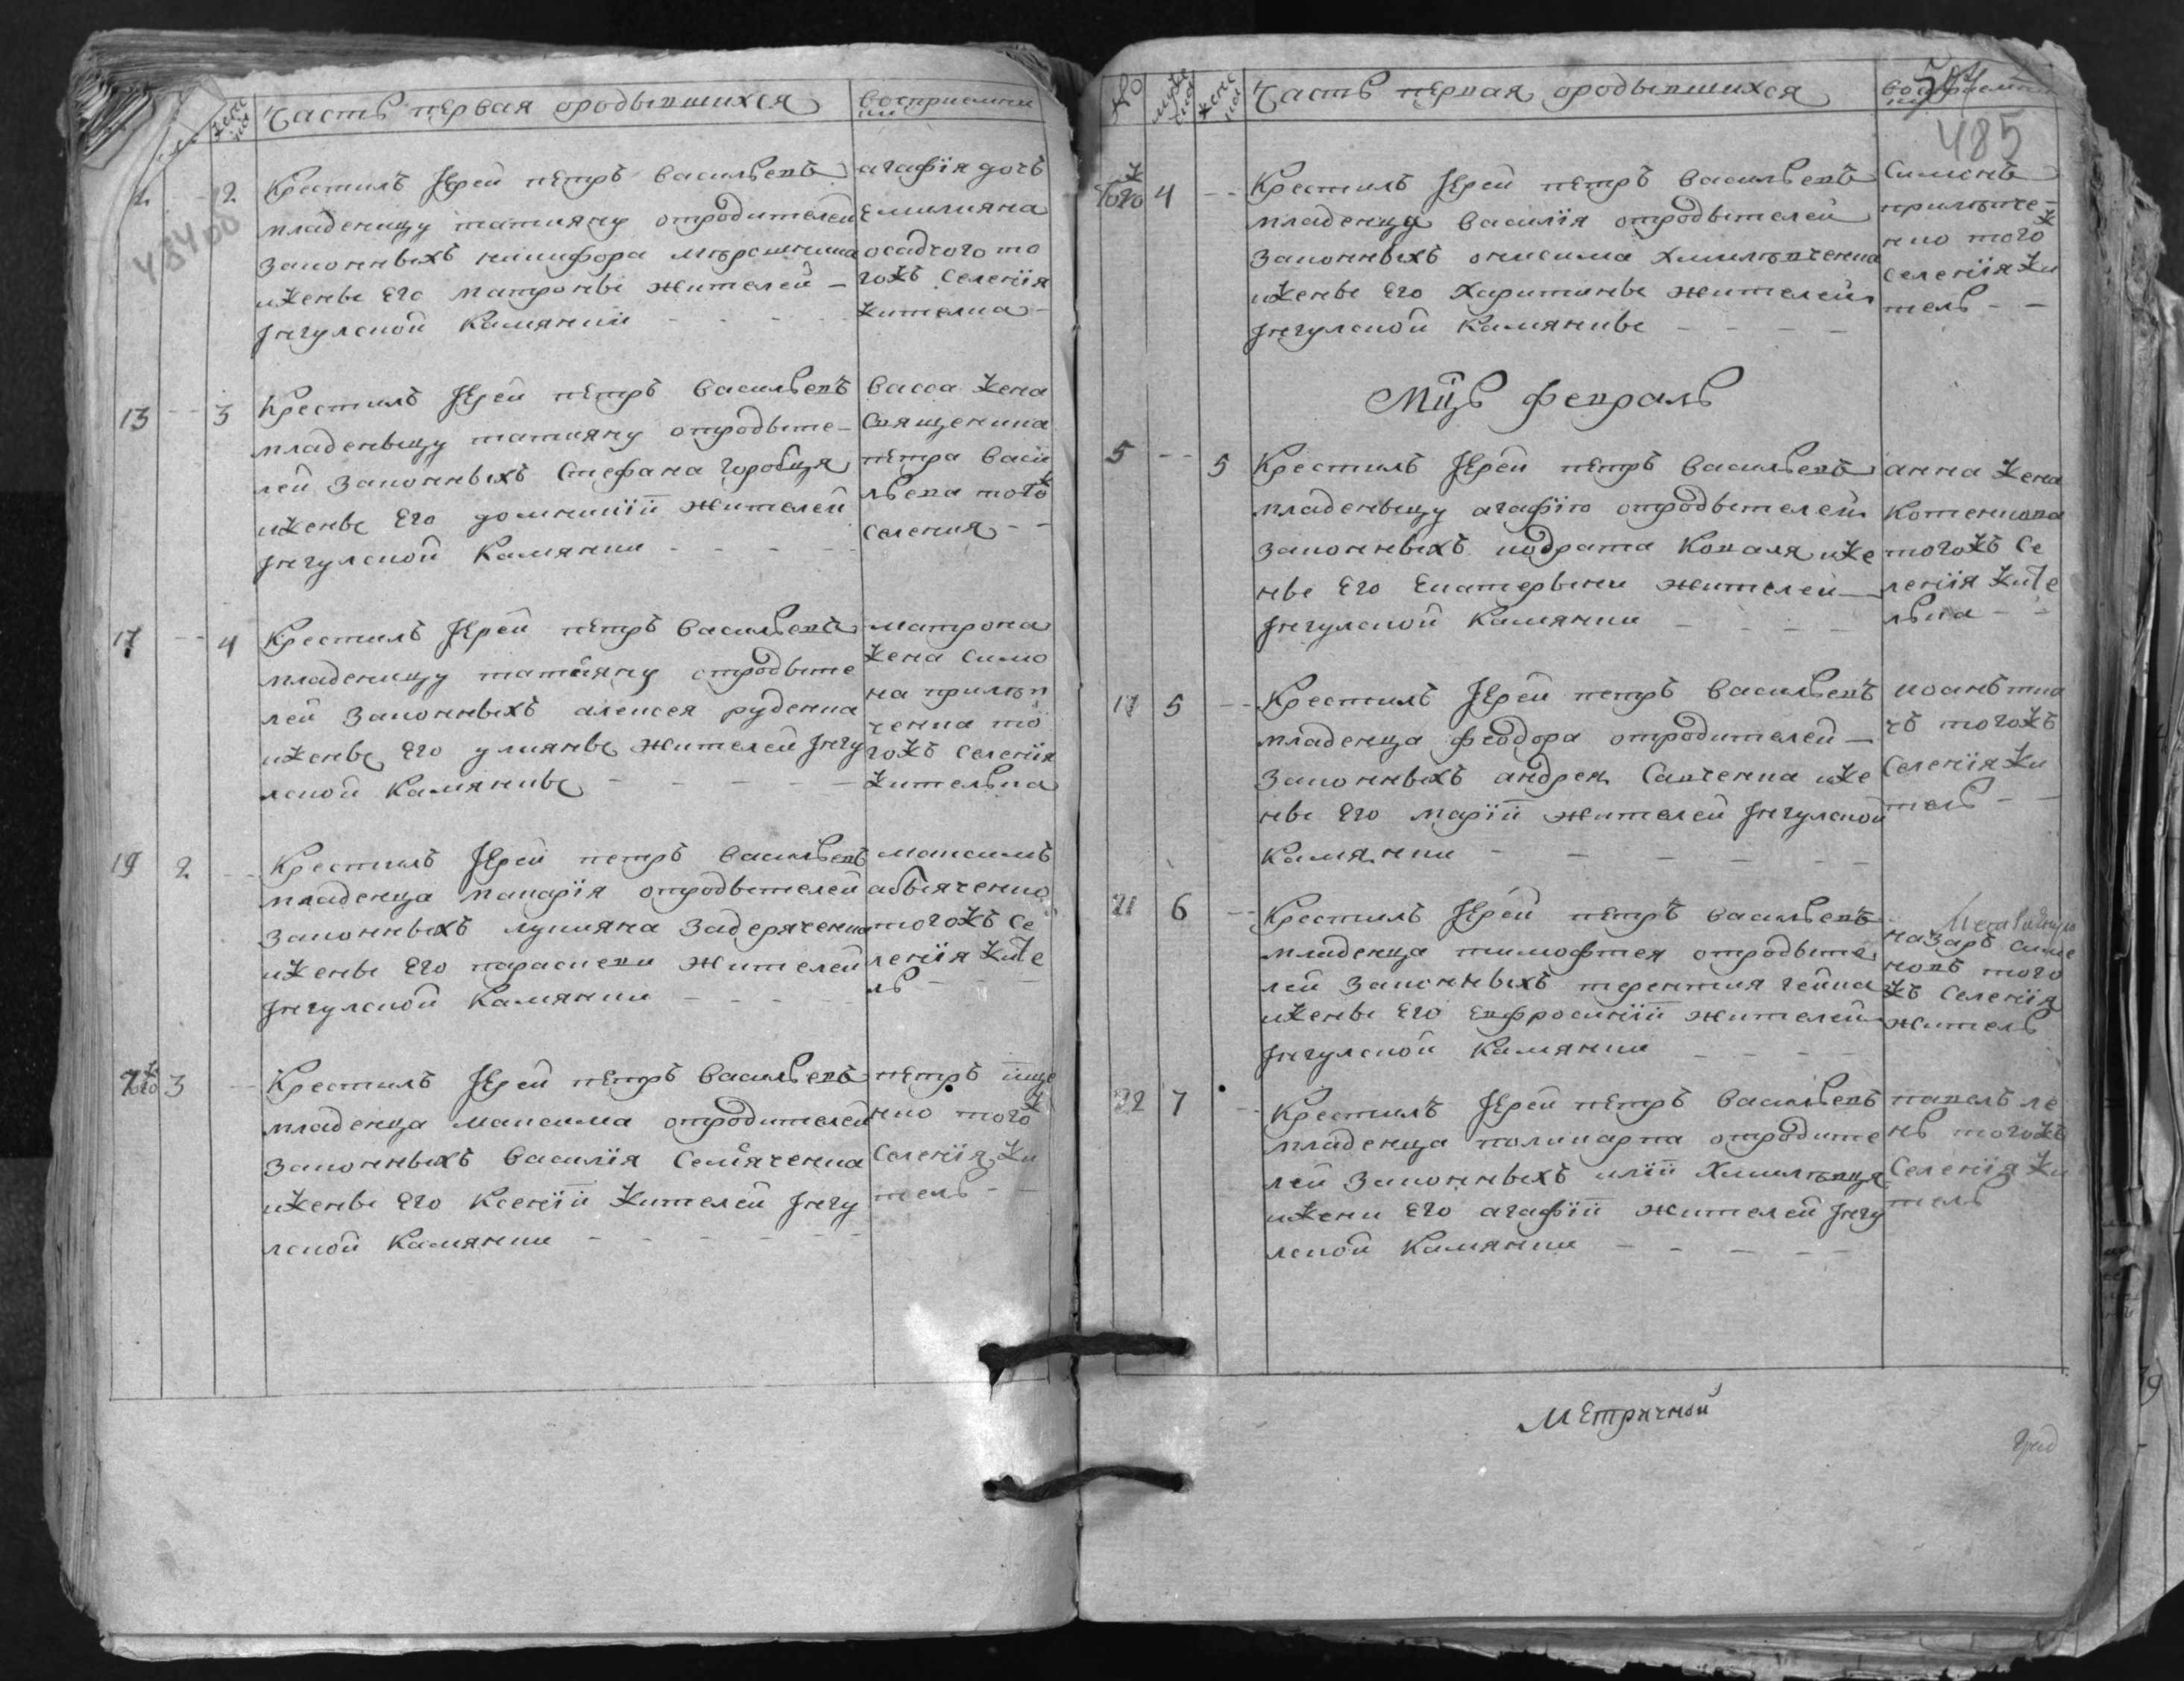 женс
ка
Часть первая ородывшихся
восприемни
ки
484 об
2
2
Крестилъ Іерей петръ васильевъ
младеницу татияну отродителей
законныхъ никифора мирошника
ижены его матроны жителей –
Інгулской Камянки
агафія дочъ
емилияна
осадчого то
гожъ селенія
жителка
13
3
Крестилъ Іерей петръ васильевъ
младеныцу татияну отродыте–
лей законныхъ Стефана горобця
ижены его домникіи жителей
Інгулской Камянки
васса жена
Священика
петра васи
льева тогож
селения
17
4
Крестилъ Іерей петръ васильевъ
младеницу татияну отродыте
лей законныхъ алексея руденка
ижены его улияны жителей Інгу
лской Камянкы
матрона
жена симо
на прилѣп
ченка то
гожъ селенія
жителька
19
2
Крестилъ Іерей петръ васильевъ
младенца макарія отродытелей
законныхъ лукияна задеряченка
ижены его параскеви жителей
Інгулской Камянки
максимъ
абыяченко
тогожъ се
ленія жите
ль
Тогож
3
Крестилъ Іерей петръ васильевъ
младенца максима отродителей
законныхъ василія Семяченка
ижены его Ксеніи жителей Інгу
лской Камянки
петръ ище
нко тогож
селенія жи
тель
№
мужс
ка
женс
ка
Часть первая ородывшихся
восприемни
ки
485
Тогож
4
Крестилъ Іерей петръ васильевъ
младенца василія отродытелей
законныхъ онисима хмилювченка
ижены его Харитины жителей
Інгулской Камянкы
Симонъ
прилѣпче–
нко тогож
селенія жи
тель
Мцъ февраль
5
5
Крестилъ Іерей петръ васильевъ
младеныцу агафію отродытелей
законныхъ кодрата Коваля иже
ны его екатерыни жителей
Інгулской Камянки
анна жена
Котенкова
тогожъ се
ленія жите
лька
17
5
Крестилъ Іерей петръ васильевъ
младенца феодора отродителей
законныхъ андрея Савченка иже
ны его маріи жителей Інгулской
Камянки
иоанъ тка
чъ тогожъ
селенія жи
тель
21
6
Крестилъ Іерей петръ васильевъ
младенца тимофтея отродыте
лей законныхъ терентия чейка
ижены его евфросиніи жителей
Інгулской Камянки
назаръ симо
новъ того
жъ селенія
житель
22
7
Крестилъ Іерей петръ васильевъ
младенца поликарпа отродите
лей законныхъ иліи Хмилювця
ижени его агафіи жителей Інгу
лской Камянки
павелъ ле
нь тогожъ
селенія жи
тель
метричной